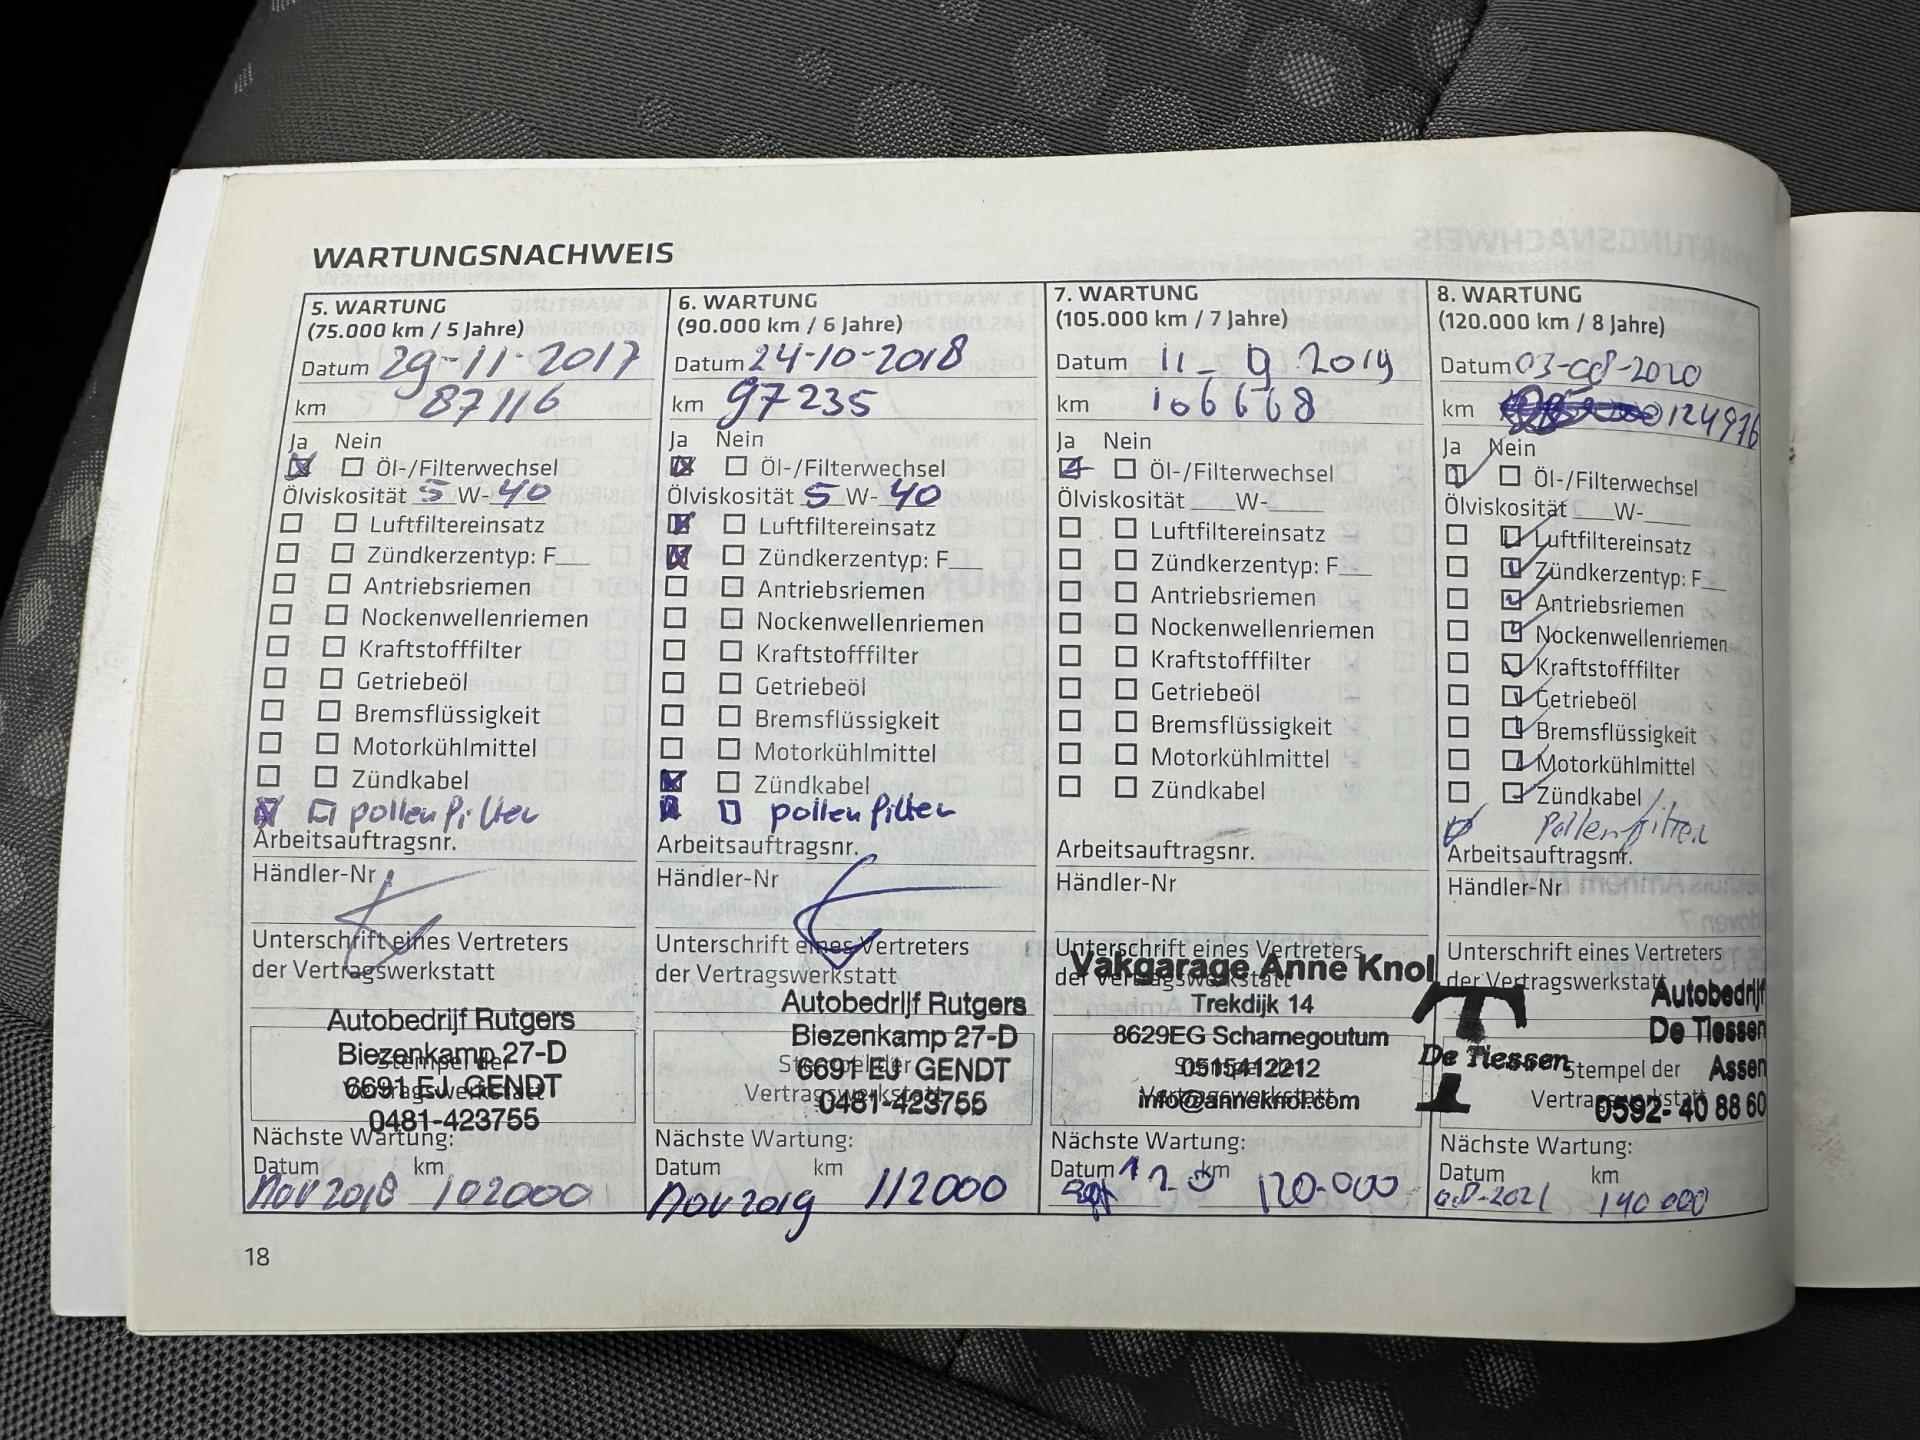 WARTUNGSNACHWEIS
5. WARTUNG
(75.000 km / 5 Jahre)
Datum 29-11-2017
km 87116
Ja Nein
Öl-/Filterwechsel
Ölviskosität 5 W-40
Luftfiltereinsatz
Zündkerzentyp: F__
Antriebsriemen
Nockenwellenriemen
Kraftstofffilter
Getriebeöl
Bremsflüssigkeit
Motorkühlmittel
Zündkabel
pollenfilter
Arbeitsauftragsnr.
Händler-Nr
Unterschrift eines Vertreters
der Vertragswerkstatt
Autobedrijf Rutgers
Biezenkamp 27-D
Stempel der
6691 EJ GENDT
Vertragswerkstatt
0481-423755
Nächste Wartung:
Datum km
Nov 2018 102000
6. WARTUNG
(90.000 km / 6 Jahre)
Datum 24-10-2018
km 97235
Ja Nein
Öl-/Filterwechsel
Ölviskosität 5 W-40
Luftfiltereinsatz
Zündkerzentyp: F__
Antriebsriemen
Nockenwellenriemen
Kraftstofffilter
Getriebeöl
Bremsflüssigkeit
Motorkühlmittel
Zündkabel
pollenfilter
Arbeitsauftragsnr.
Händler-Nr
Unterschrift eines Vertreters
der Vertragswerkstatt
Autobedrijf Rutgers
Biezenkamp 27-D
Stempel der
6691 EJ GENDT
Vertragswerkstatt
0481-423755
Nächste Wartung:
Datum km
Nov 2019 112000
7. WARTUNG
(105.000 km / 7 Jahre)
Datum 11-9 2019
km 106668
Ja Nein
Öl-/Filterwechsel
Ölviskosität ___W-___
Luftfiltereinsatz
Zündkerzentyp: F__
Antriebsriemen
Nockenwellenriemen
Kraftstofffilter
Getriebeöl
Bremsflüssigkeit
Motorkühlmittel
Zündkabel
Arbeitsauftragsnr.
Händler-Nr
Unterschrift eines Vertreters
Vakgarage Anne Knol
der Vertragswerkstatt
Trekdijk 14
8629EG Scharnegoutum
Stempel der
0515412212
Vertragswerkstatt
info@anneknol.com
Nächste Wartung:
Datum km
120.000
8. WARTUNG
(120.000 km / 8 Jahre)
Datum 03-08-2020
km 124976
Ja Nein
Öl-/Filterwechsel
Ölviskosität ___W-___
Luftfiltereinsatz
Zündkerzentyp: F__
Antriebsriemen
Nockenwellenriemen
Kraftstofffilter
Getriebeöl
Bremsflüssigkeit
Motorkühlmittel
Zündkabel
Pollenfilter
Arbeitsauftragsnr.
Händler-Nr
Unterschrift eines Vertreters
der Vertragswerkstatt
Autobedrijf
T
De Tiessen
De Tiessen
Stempel der
Assen
Vertragswerkstatt
0592-40 88 60
Nächste Wartung:
Datum km
140 000
18